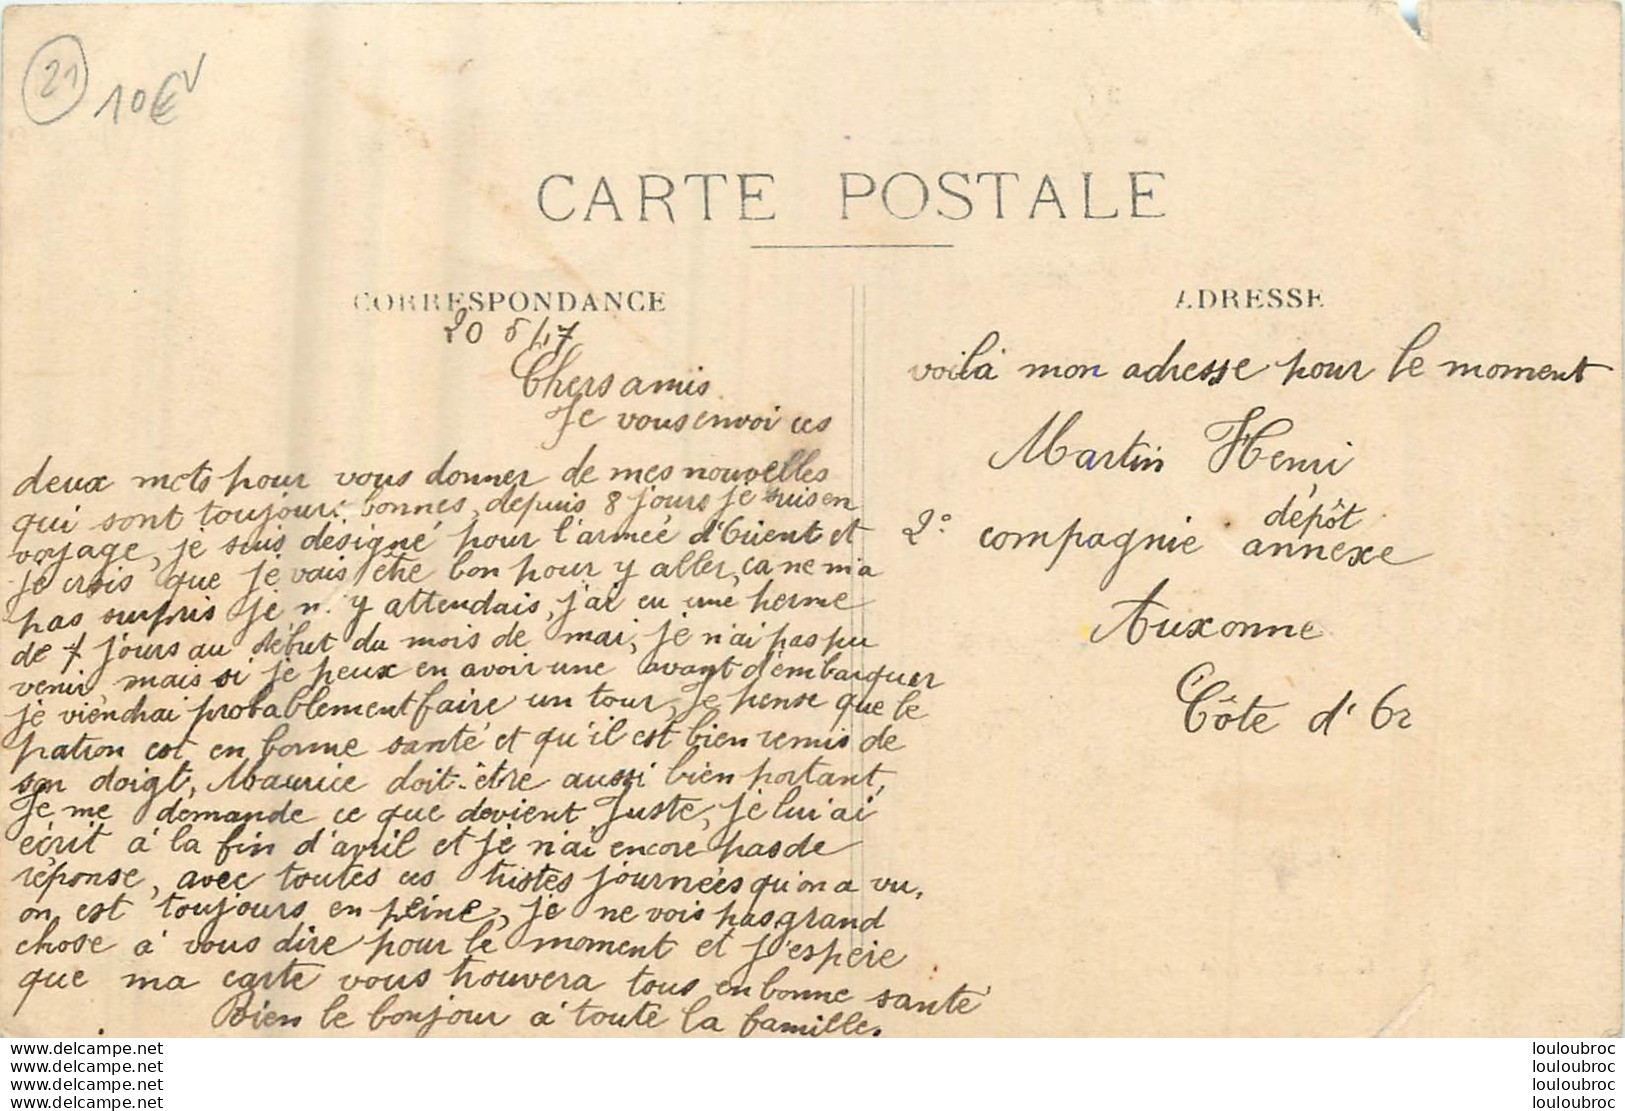 21
10€
CARTE POSTALE
CORRESPONDANCE
20 5/17
Chers amis
Je vous envoi ces
deux mots pour vous donner de mes nouvelles
qui sont toujours bonnes, depuis 8 jours je suis en
voyage, je suis désigné pour l'armée d'Orient et
je crois que je vais être bon pour y aller, ca ne m'a
pas surpris je n'y attendais, j'ai eu une perme
de 7 jours au début du mois de mai, je n'ai pas pu
venir, mais si je peux en avoir une avant d'embarquer
je viendrai probablement faire un tour, Je pense que le
patron est en bonne santé et qu'il est bien remis de
son doigt, Maurice doit-être aussi bien portant,
Je me demande ce que devient Juste, je lui ai
écrit à la fin d'avril et je n'ai encore pas de
réponse, avec toutes ces tristes journées qu'on a vu,
on est toujours en peine, je ne vois pas grand
chose à vous dire pour le moment et j'espère
que ma carte vous trouvera tous en bonne santé
Bien le bonjour à toute la famille.
ADRESSE
voilà mon adresse pour le moment
Martin Henri
2° compagnie dépôt annexe
Auxonne
Côte d'Or
www.delcampe.net
www.delcampe.net
www.delcampe.net
www.delcampe.net
louloubroc
louloubroc
louloubroc
louloubroc